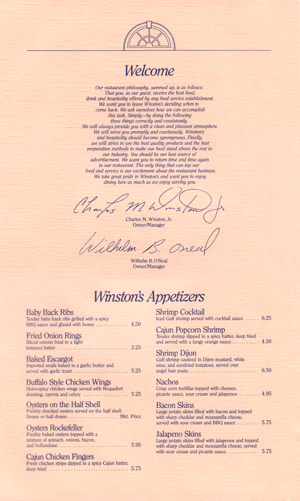 Welcome
Our restaurant philosophy, summed up, is as follows:
That you, as our guest, receive the best food,
drink and hospitality offered by any food service establishment.
We want you to leave Winston's deciding when to
come back. We ask ourselves how we can accomplish
this task. Simply—by doing the following
three things correctly and consistently.
We will always provide you with a clean and pleasant atmosphere.
We will serve you promptly and courteously. Winston's
and hospitality should become synonymous. Finally,
we will strive to use the best quality products and the best
preparation methods to make our food stand above the rest in
our industry. You should be our best source of
advertisement. We want you to return time and time again
to our restaurant. The only thing that can top our
food and service is our excitement about the restaurant business.
We take great pride in Winston's and want you to enjoy
dining here as much as we enjoy serving you.
Charles M. Winston, Jr.
Charles M. Winston, Jr.
Owner/Manager
Wilhelm B. O'Neal
Wilhelm B. O'Neal
Owner/Manager
Winston's Appetizers
Baby Back Ribs
Tender baby back ribs grilled with a spicy
BBQ sauce and glazed with honey 4.50
Fried Onion Rings
Sliced onions fried to a light
tempura batter 3.25
Baked Escargot
Imported snails baked in a garlic butter and
served with garlic toast 5.25
Buffalo Style Chicken Wings
Hot-n-spicy chicken wings served with Roquefort
dressing, carrots and celery 5.25
Oysters on the Half Shell
Freshly shucked oysters served on the half shell.
Dozen or half dozen Mkt. Price
Oysters Rockefeller
Freshly baked oysters topped with a
mixture of spinach, onions, bacon,
and hollandaise 5.95
Cajun Chicken Fingers
Fresh chicken strips dipped in a spicy Cajun batter,
deep fried 5.75
Shrimp Cocktail
Iced Gulf shrimp served with cocktail sauce 6.25
Cajun Popcorn Shrimp
Tender shrimp dipped in a spicy batter, deep fried
and served with a tangy orange sauce 5.50
Shrimp Dijon
Gulf shrimp sauteed in Dijon mustard, white
wine, and sundried tomatoes, served over
angel hair pasta 6.50
Nachos
Crisp corn tortillas topped with cheeses,
picante sauce, sour cream and jalapenos 4.95
Bacon Skins
Large potato skins filled with bacon and topped
with sharp cheddar and mozzarella cheese, served
with sour cream and BBQ sauce 5.75
Jalapeno Skins
Large potato skins filled with jalapenos and topped
with sharp cheddar and mozzarella cheese, served
with sour cream and picante sauce. 5.75